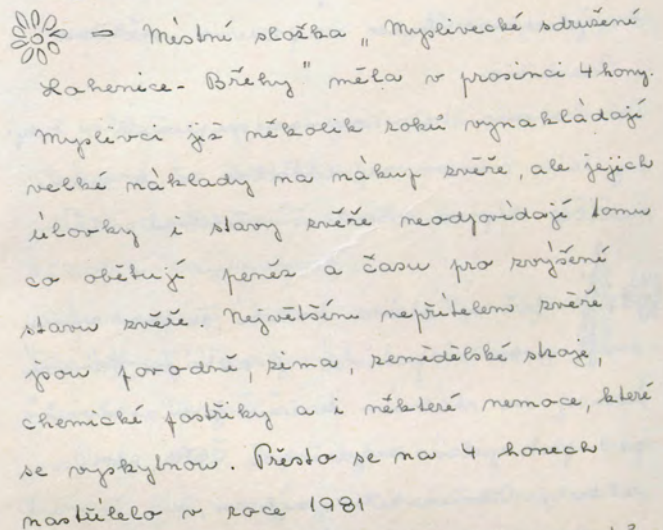 - Místní složka "Myslivecké sdružení
Lahenice - Břehy" měla v prosinci 4 hony.
Myslivci již několik roků vynakládají
velké náklady na nákup zvěře, ale jejich
úlovky i stavy zvěře neodpovídají tomu
co obětují peněz a času pro zvýšené
stavu zvěře. Největším nepřítelem zvěře
jsou povodně, zima, zemědělské stroje,
chemické postřiky a i některé nemoce, které
se vyskytnou. Přesto se na 4 honech
nastřílelo v roce 1981